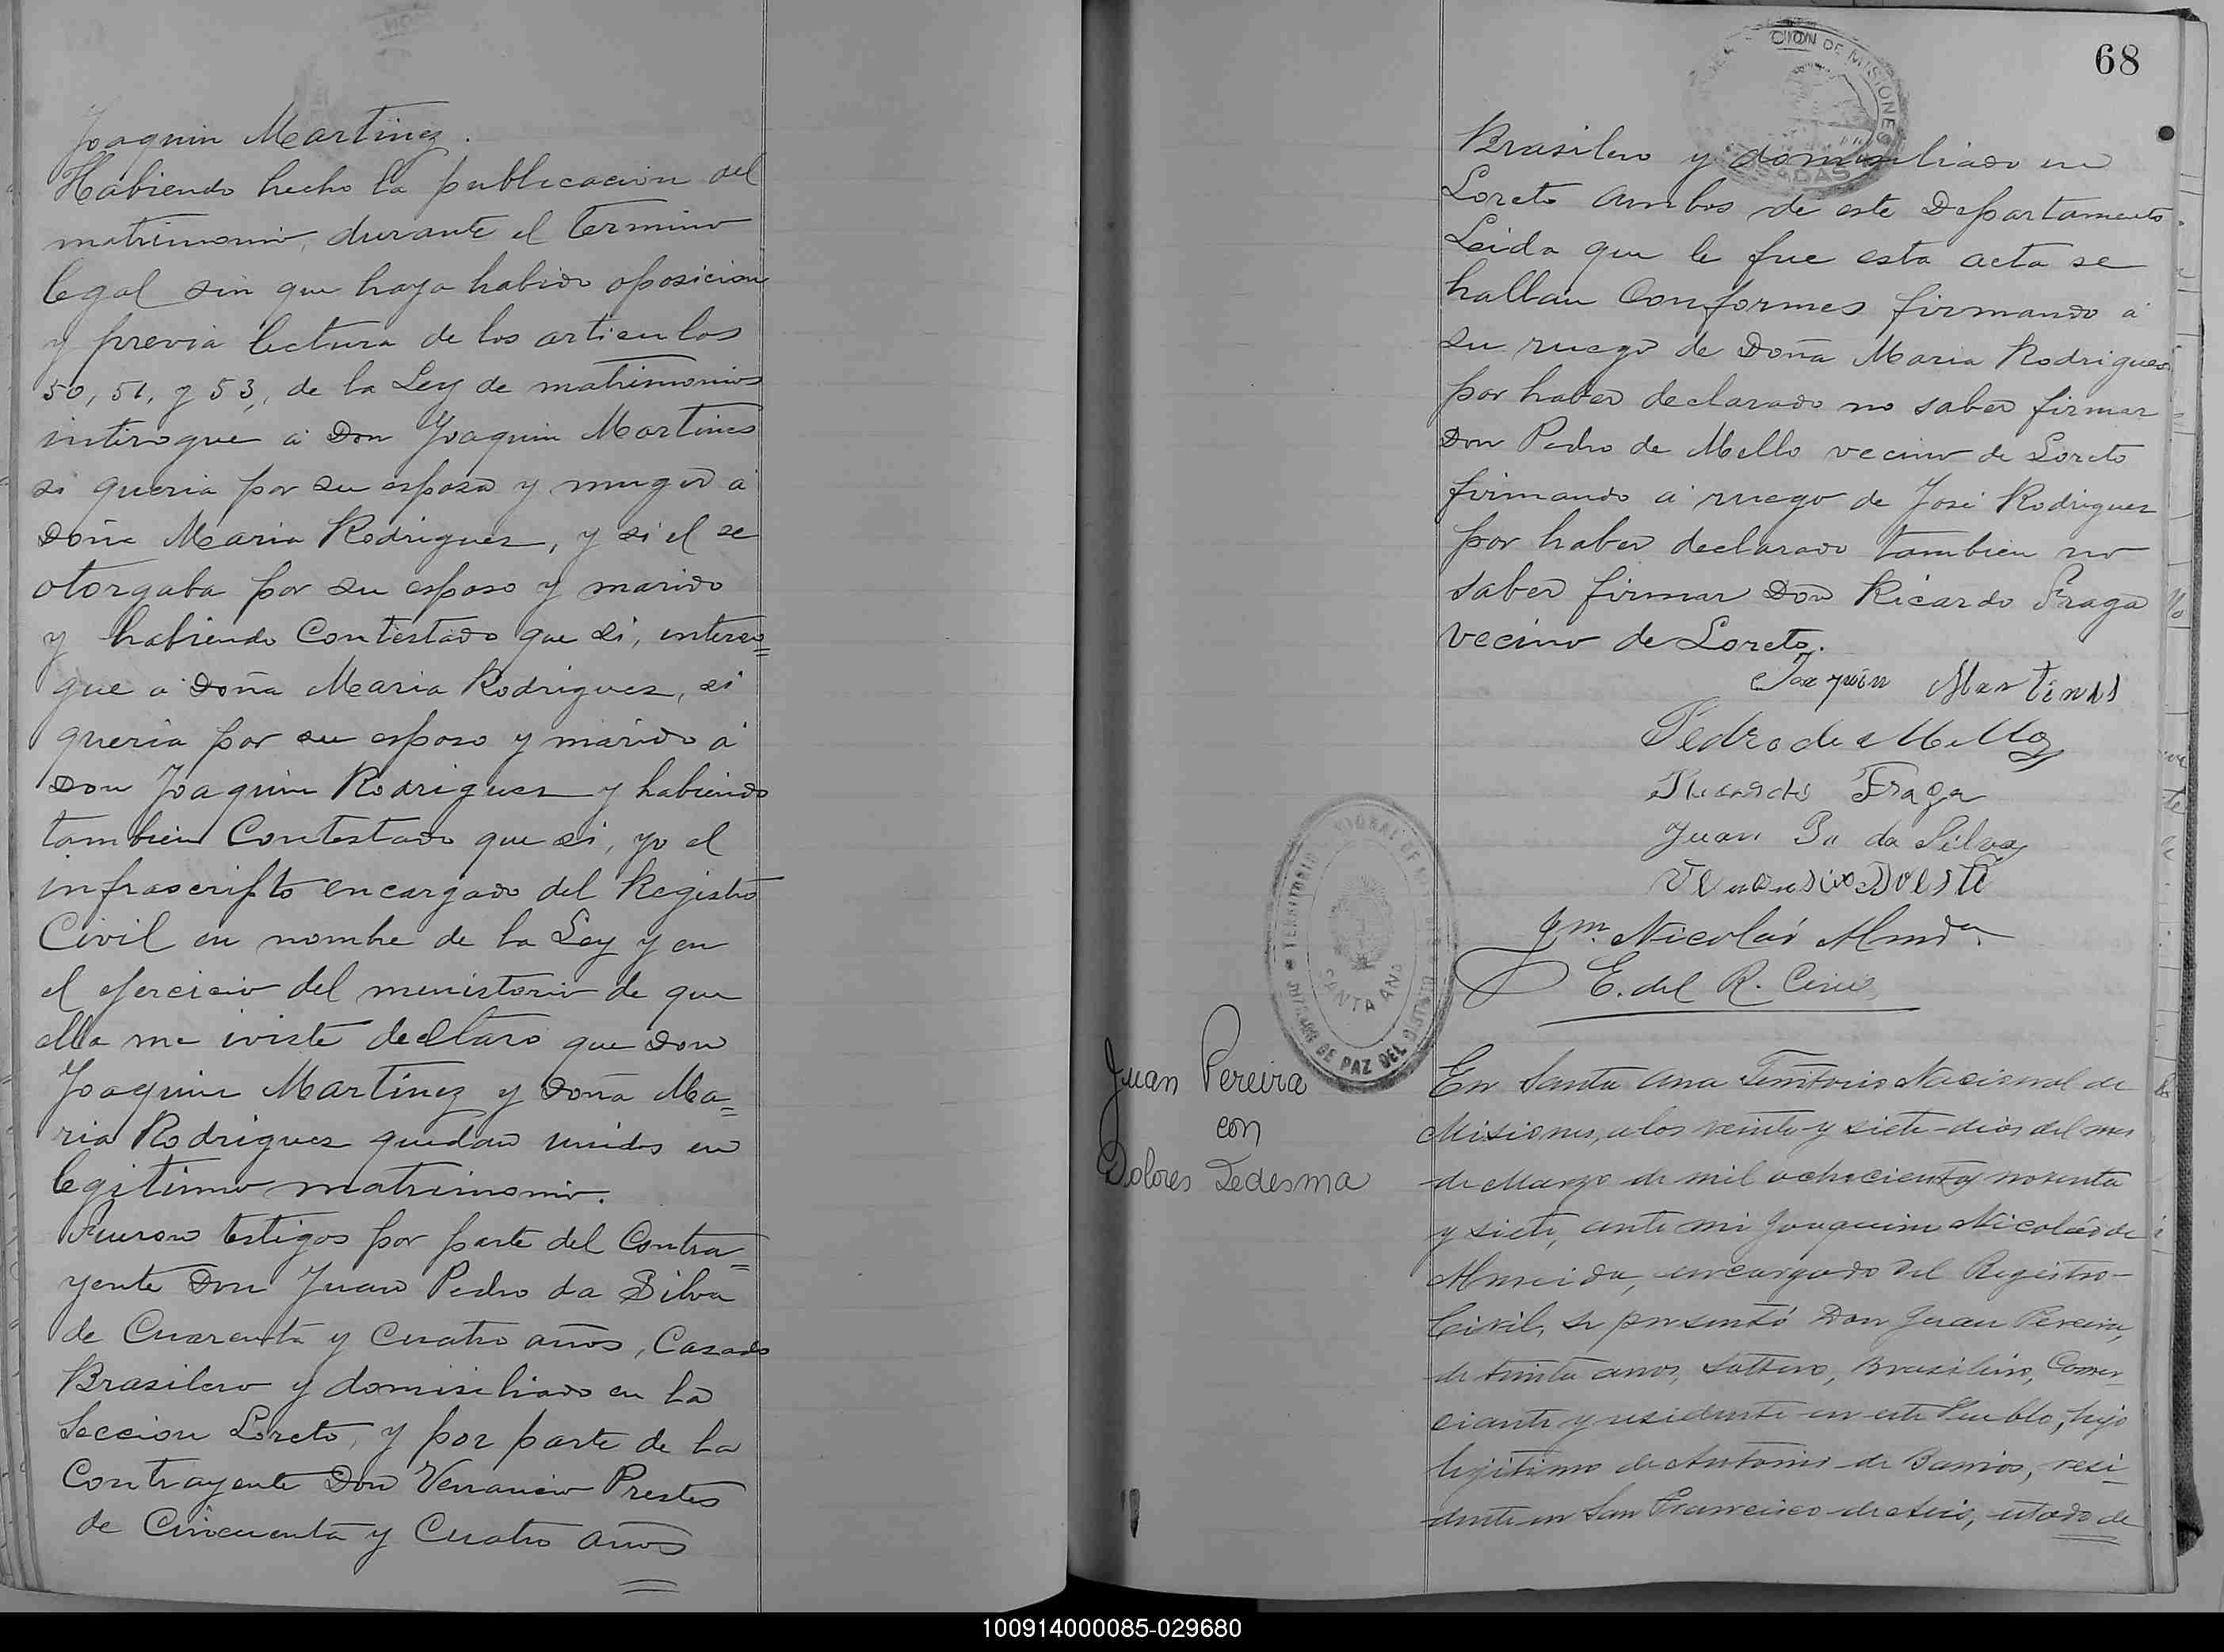 Joaquin Martinez.
Habiendo hecho la publicacion del
matrimonio, durante el termino
legal sin que haya habido oposicion
y previa lectura de los articulos
50, 51, y 53, de la Ley de matrimonios
interogue a Don Joaquin Martines
si queria por su esposa y muger a
Doña Maria Rodriguez, y si el se
otorgaba por su esposo y marido
y habiendo Contestado que si, intero=
gue a Doña Maria Rodriguez, si
queria por su esposo y marido a
Don Joaquin Rodriguez y habiendo
tambien Contestado que si, yo el
infrascripto encargado del Registro
Civil en nombre de la Ley y en
el ejercicio del menisterio de que
ella me iviste decltaro que Don
Joaquin Martinez y Doña Ma=
ria Rodriguez quedan unidos en
legitimo matrimonio.
Fueron testigos por parte del Contra=
yente Don Juan Pedro da Silva
de Cuarenta y Cuatro años, Casado
Brasilero y domisiliado en la
Seccion Loreto, y por parte de la
Contrayente Don Venancio Prestes
de Cincuenta y Cuatro años
68
CION DE MISIONES
POSADAS
Brasilero y domisiliado en
Loreto ambos de este Departamento
Leida que le fue esta acta se
hallan Conformes firmando a
su ruego de Doña Maria Rodriguez
por haber declarado no saber firmar
Don Pedro de Mello vecino de Loreto
firmando a ruego de José Rodriguez
por haber declarado tambien no
saber firmar Don Ricardo Fraga
vecino de Loreto.
Joaquin Martines
Pedro de Mello
Ricardo Fraga
Juan Po da Silva
Jm. Nicolás Almda.
E. del R. Civil
TERRITORIO NACIONAL DE MISIONES
SANTA ANA
JUZGADO DE PAZ DEL DISTRITO
Juan Pereira
con
Dolores Ledesma
En Santa Ana Territorio Nacional de
Misiones, a los veinte y siete dias del mes
de Marzo de mil ochocientos noventa
y siete, ante mi Joaquin Nicolás de
Almeida, encargado del Registro
Civil, se presentó Don Juan Pereira,
de treinta años, soltero, Brasilero, Comer-
ciante y residente en este Pueblo, hijo
legitimo de Antonio de Barrios, resi-
dente en San Francisco de Asis, estado de
100914000085-029680